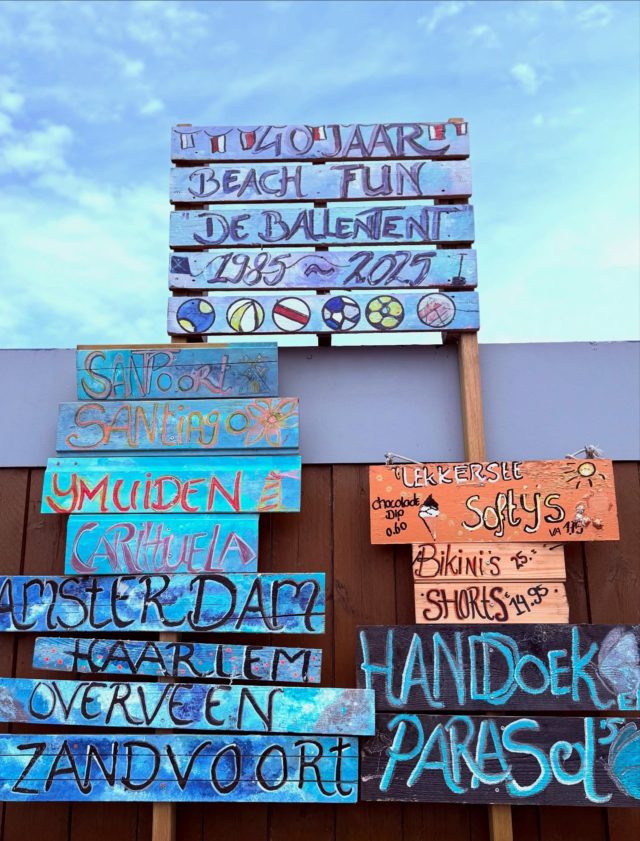 40 JAAR
BEACH FUN
"DE BALLENTENT"
1985 ~ 2025
SANTPOORT
SANTIAGO
YMUIDEN
CARIHUELA
AMSTERDAM
HAARLEM
OVERVEEN
ZANDVOORT
LEKKERSTE
SOFTYS
chocolade
DIP
0.60
VA
BIKINI'S 25.-
SHORTS €14.95
HANDOEK
PARASOL